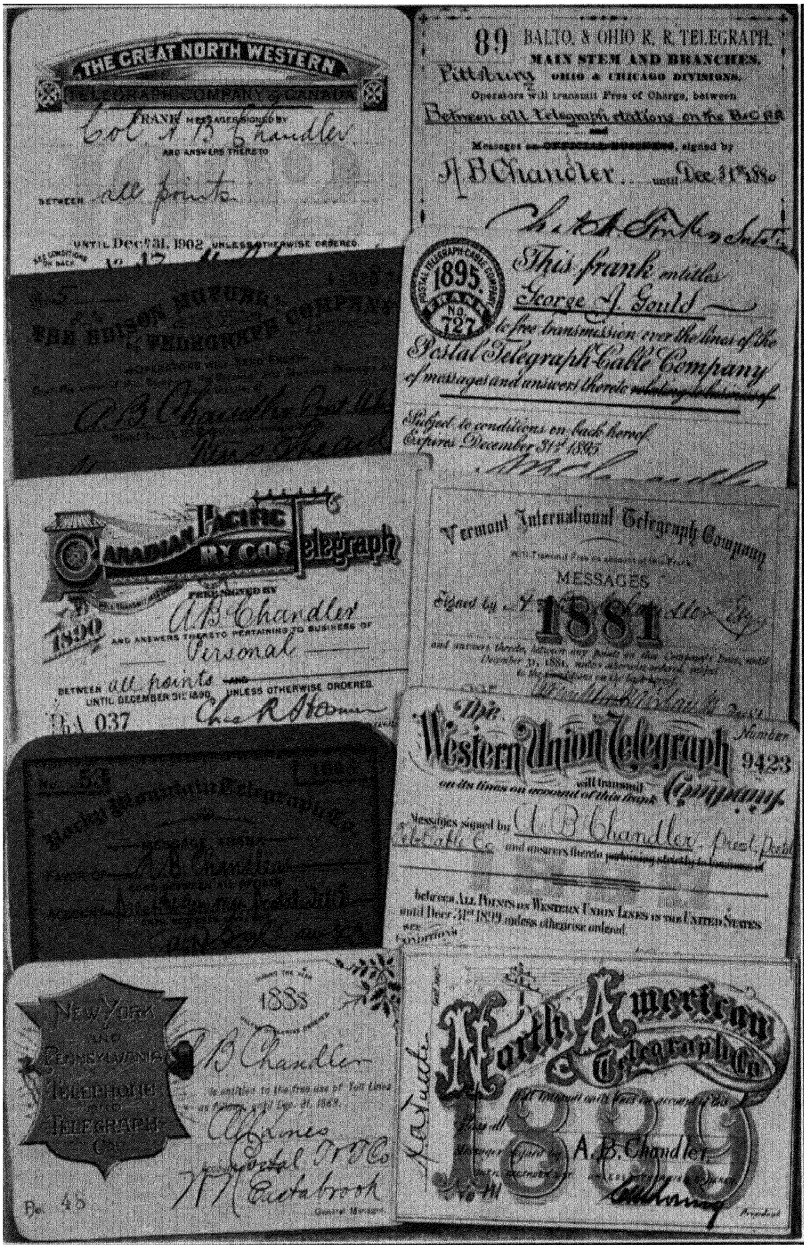 THE GREAT NORTH WESTERN
TELEGRAPH COMPANY OF CANADA
FRANK MESSAGES SIGNED BY
Col. A B Chandler
AND ANSWERS THERETO
BETWEEN all points
UNTIL Dec. 31, 1902 UNLESS OTHERWISE ORDERED.
SEE CONDITIONS ON BACK
89 BALTO. & OHIO R. R. TELEGRAPH.
MAIN STEM AND BRANCHES.
Pittsburg OHIO & CHICAGO DIVISIONS.
Operators will transmit Free of Charge, between
Between all Telegraph stations on the B&O RR
and
Messages on OFFICIAL BUSINESS, signed by
A B Chandler until Dec. 31st
5
THE EDISON MUTUAL
TELEGRAPH COMPANY
A.B. Chandler
POSTAL TELEGRAPH-CABLE COMPANY
1895.
FRANK
No.
727
This frank entitles
George J. Gould
to free transmission over the lines of the
Postal Telegraph-Cable Company
of messages and answers thereto relating to business of
Subject to conditions on back hereof
Expires December 31st 1895.
CANADIAN PACIFIC
RY CO'S Telegraph
1890
FREE SIGNED BY
A.B. Chandler
AND ANSWERS THERETO PERTAINING TO BUSINESS OF
Personal
BETWEEN all points AND
UNTIL DECEMBER 31st 1890, UNLESS OTHERWISE ORDERED.
037
Vermont International Telegraph Company
MESSAGES
Signed by
1881
and answers thereto, between any point on this Company's lines, until
December 31, 1881, unless otherwise ordered, subject
to the conditions on the back
No 53
Rocky Mountain Telegraph Co.
FAVOR OF A B Chandler
The Number
Western Union Telegraph 9423
will transmit Company.
on its lines on account of this frank
Messages signed by A. B. Chandler, Prest. Postal
Tel. Cable Co and answers thereto pertaining strictly to business of
between ALL POINTS ON WESTERN UNION LINES IN THE UNITED STATES
until Decr. 31st 1899 unless otherwise ordered.
SEE CONDITIONS
NEW YORK
AND
PENNSYLVANIA
TELEPHONE
AND
TELEGRAPH
CO.
1888
A B Chandler
Is entitled to the free use of Toll Lines
All Lines
Postal T & T Co
Eastabrook
General Manager.
No. 48
North American
Telegraph Co.
1889
A. B. Chandler
President